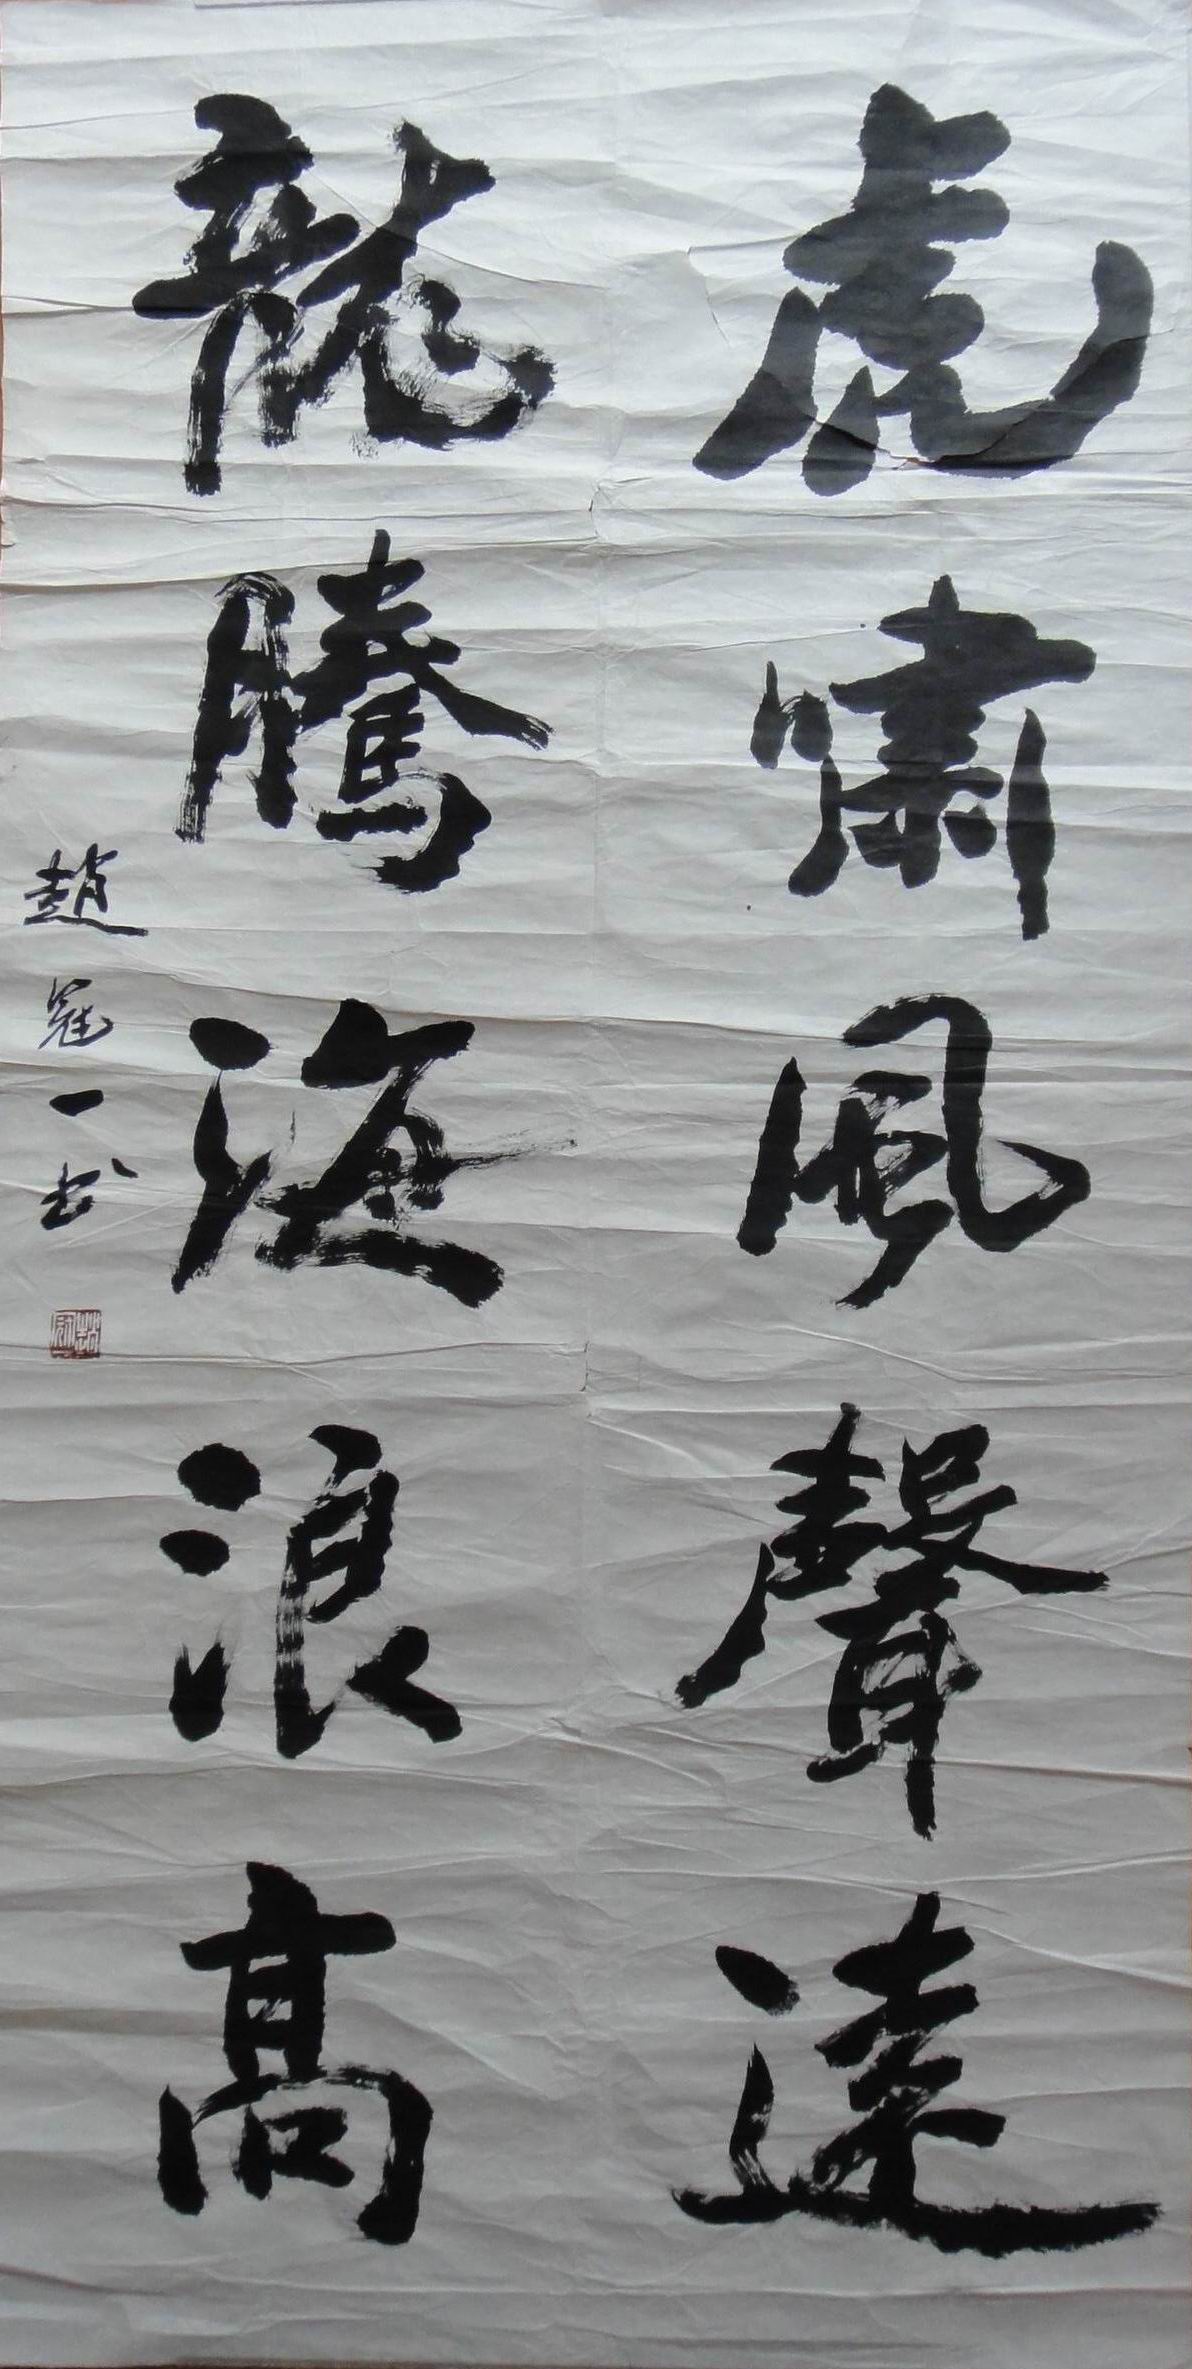 虎嘯風聲遠
龍騰海浪高
趙冠一书